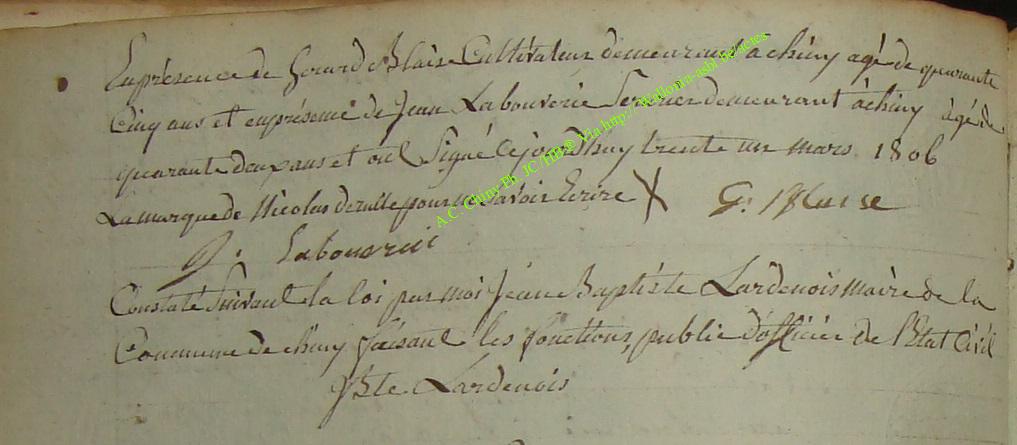 En présence de Gerard Blaise Cultivateur demeurant à chiny agé de quarante
Cinq ans et en présence de Jean Labouverie Serurier demeurant à chiny àgé de
quarante deux ans et onl Signé Ce jourdhuy trente un mars 1806
La marque de Nicolas pour ne Savoir Ecrire X G: Blaise
J: Labouverie
Constaté Suivant la loi par moi Jean Baptiste Lardenois maire de la
Commune de chiny faisant les fonctions, public d'officier de l'Etat Civil
JBte Lardenois
A.C. Chiny Ph. JC/HB® Via http://Wallonia-asbl.be/actes